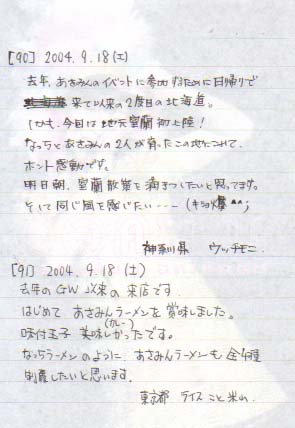 [90] 2004.9.18(土)
去年、あさみのイベントに参加するために日帰りで
来て以来の2度目の北海道。
しかも、今回は地元室蘭初上陸!
なっちとあさみの2人が育ったこの地に
ホント感動です。
明日朝、室蘭散策を満きつしたいと思ってます。
そして同じ風を感じたい・・・・(キショ爆^^;
神奈川県 ウッチモニ
[91] 2004.9.18(土)
去年のGW以来の来店です
はじめて あさみんラーメンを賞味しました。
味付玉子 美味しかったです。
(カレー)
なっちラーメンのように、あさみんラーメンも全4種
制覇したいと思います。
東京都 ライスこと米